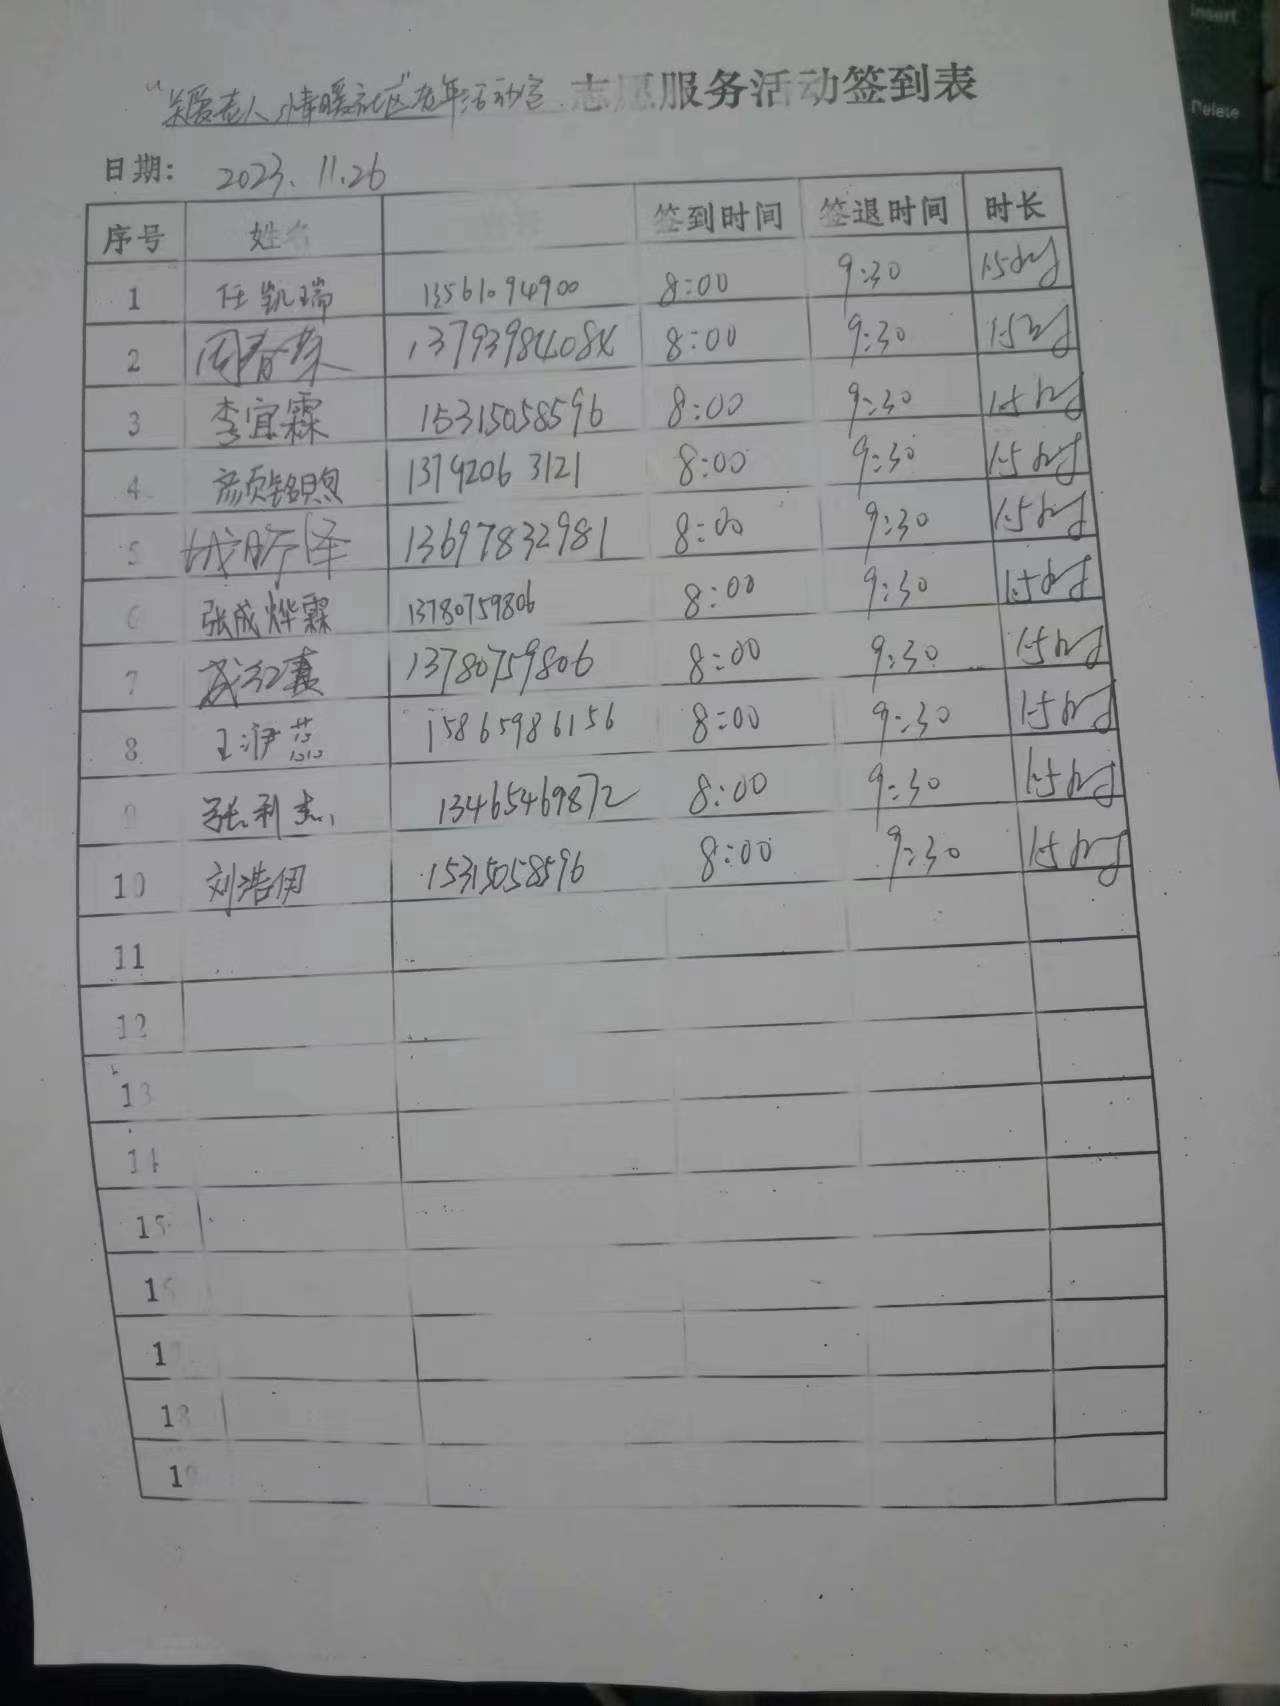 “关爱老人,情暖社区”老年活动室 志愿服务活动签到表
日期: 2023.11.26
序号 姓名 签到时间 签退时间 时长
1 任凯瑞 13561094900 8:00 9:30 1.5小时
2 周春荣 8:00 9:30 1.5小时
3 李宜霖 15315058596 8:00 9:30 1.5小时
4 颜铭煦 13792063121 8:00 9:30 1.5小时
5 13697832981 8:00 9:30 1.5小时
6 张成烨霖 13780759806 8:00 9:30 1.5小时
7 13780759806 8:00 9:30 1.5小时
8 王浉蕊 15865986156 8:00 9:30 1.5小时
9 张利杰 13465469872 8:00 9:30 1.5小时
10 刘浩伊 15315058596 8:00 9:30 1.5小时
11
12
13
14
15
16
17
18
19
Insert
Delete